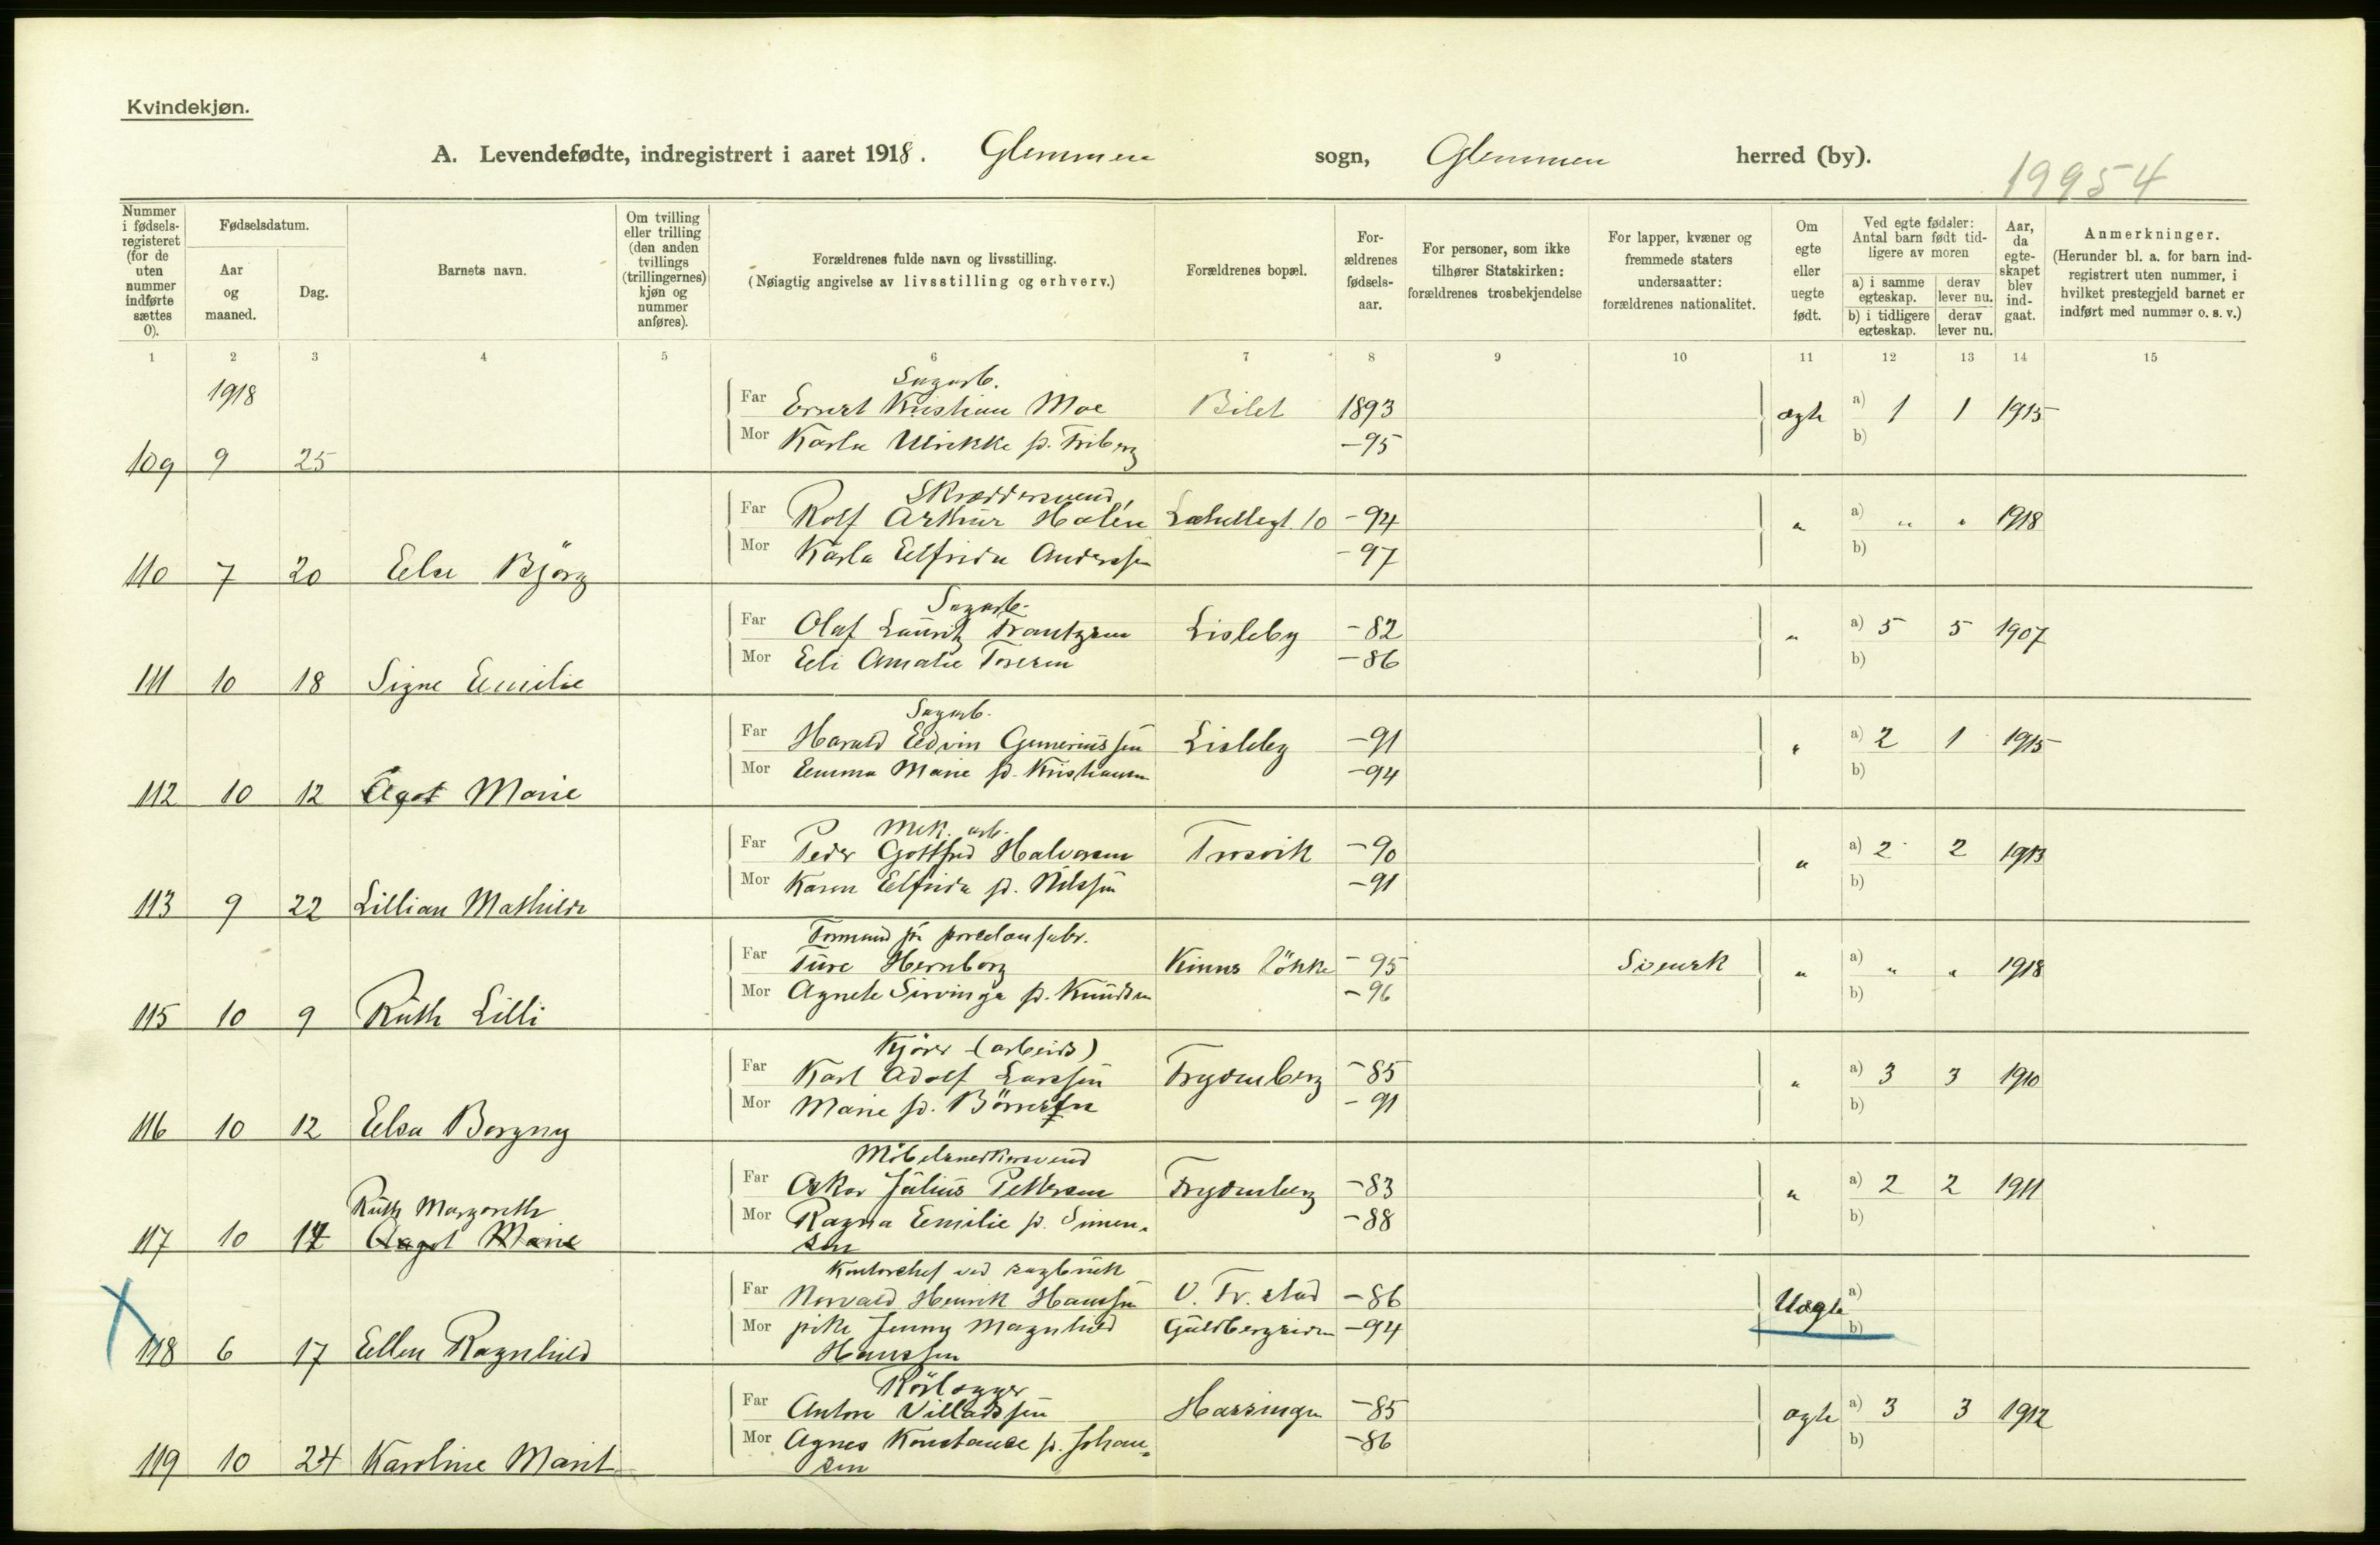 Kvindekjøn.
A. Levendefødte, indregistrert i aaret 1918. Glemmen sogn, Glemmen herred (by).
19954
Nummer i fødsels-registeret (for de uten nummer indførte sættes 0).
Fødselsdatum.
Aar og maaned.
Dag.
Barnets navn.
Om tvilling eller trilling (den anden tvillings (trillingernes) kjøn og nummer anføres).
Forældrenes fulde navn og livsstilling.
(Nøiagtig angivelse av livsstilling og erhverv.)
Forældrenes bopæl.
For-ældrenes fødsels-aar.
For personer, som ikke tilhører Statskirken: forældrenes trosbekjendelse
For lapper, kvæner og fremmede staters undersaatter: forældrenes nationalitet.
Om egte eller uegte født.
Ved egte fødsler: Antal barn født tid-ligere av moren
a) i samme egteskap. derav lever nu.
b) i tidligere egteskap. derav lever nu.
Aar, da egte-skapet blev ind-gaat.
Anmerkninger.
(Herunder bl. a. for barn ind-registrert uten nummer, i hvilket prestegjeld barnet er indført med nummer o. s. v.)
1 2 3 4 5 6 7 8 9 10 11 12 13 14 15
1918
Sagarb.
Far Ernst Kristian Moe Bilet 1893 ægte a) 1 1 1915
Mor Karla Ulrikke f. Friberg -95 b)
109 9 25
Skræddersvend,
Far Rolf Arthur Halén 10 -94 " a) " " 1918
Mor Karla Elfrida Anderssen -97 b)
110 7 20 Else Bjørg
Sagarb.
Far Olaf Lauritz Frantzen Lisleby -82 " a) 5 5 1907
Mor Eli Amalie -86 b)
111 10 18 Signe Emilie
Sagarb.
Far Harald Edvin Guneriussen Lisleby -91 " a) 2 1 1915
Mor Emma Marie f. Kristiansen -94 b)
112 10 12 Agot Marie
Mek. arb.
Far Peder Gottfred Halvorsen Trosvik -90 " a) 2 2 1913
Mor Karen Elfrida f. Nilssen -91 b)
113 9 22 Lillian Mathilde
Formand på porcelænsfabr.
Far Ture Hernborg Kinns løkke -95 Svensk " a) " " 1918
Mor Agnete f. Knudsen -96 b)
115 10 9 Ruth Lilli
Kjører (arbeids)
Far Karl Adolf Larssen Frydenberg -85 " a) 3 3 1910
Mor Marie f. Børresen -91 b)
116 10 12 Elsa Borgny
Møbelsnedkersvend
Far Oskar Julius Pettersen Frydenberg -83 " a) 2 2 1911
Ruth Margareth
Mor Ragna Emilie f. Simen- -88 b)
117 10 17 Aagot Marie sen
Kontorchef ved sagbruk
Far Norvald Henrik Hanssen V. Fr.stad -86 Uægte a)
Mor pike Jenny Magnhild Guldbergsiden -94 b)
118 6 17 Ellen Ragnhild Hanssen
Rørlægger
Far Anton Villadssen Hassingen -85 ægte a) 3 3 1912
Mor Agnes Konstanse f. Johan- -86 b)
119 10 24 Karoline Marit sen